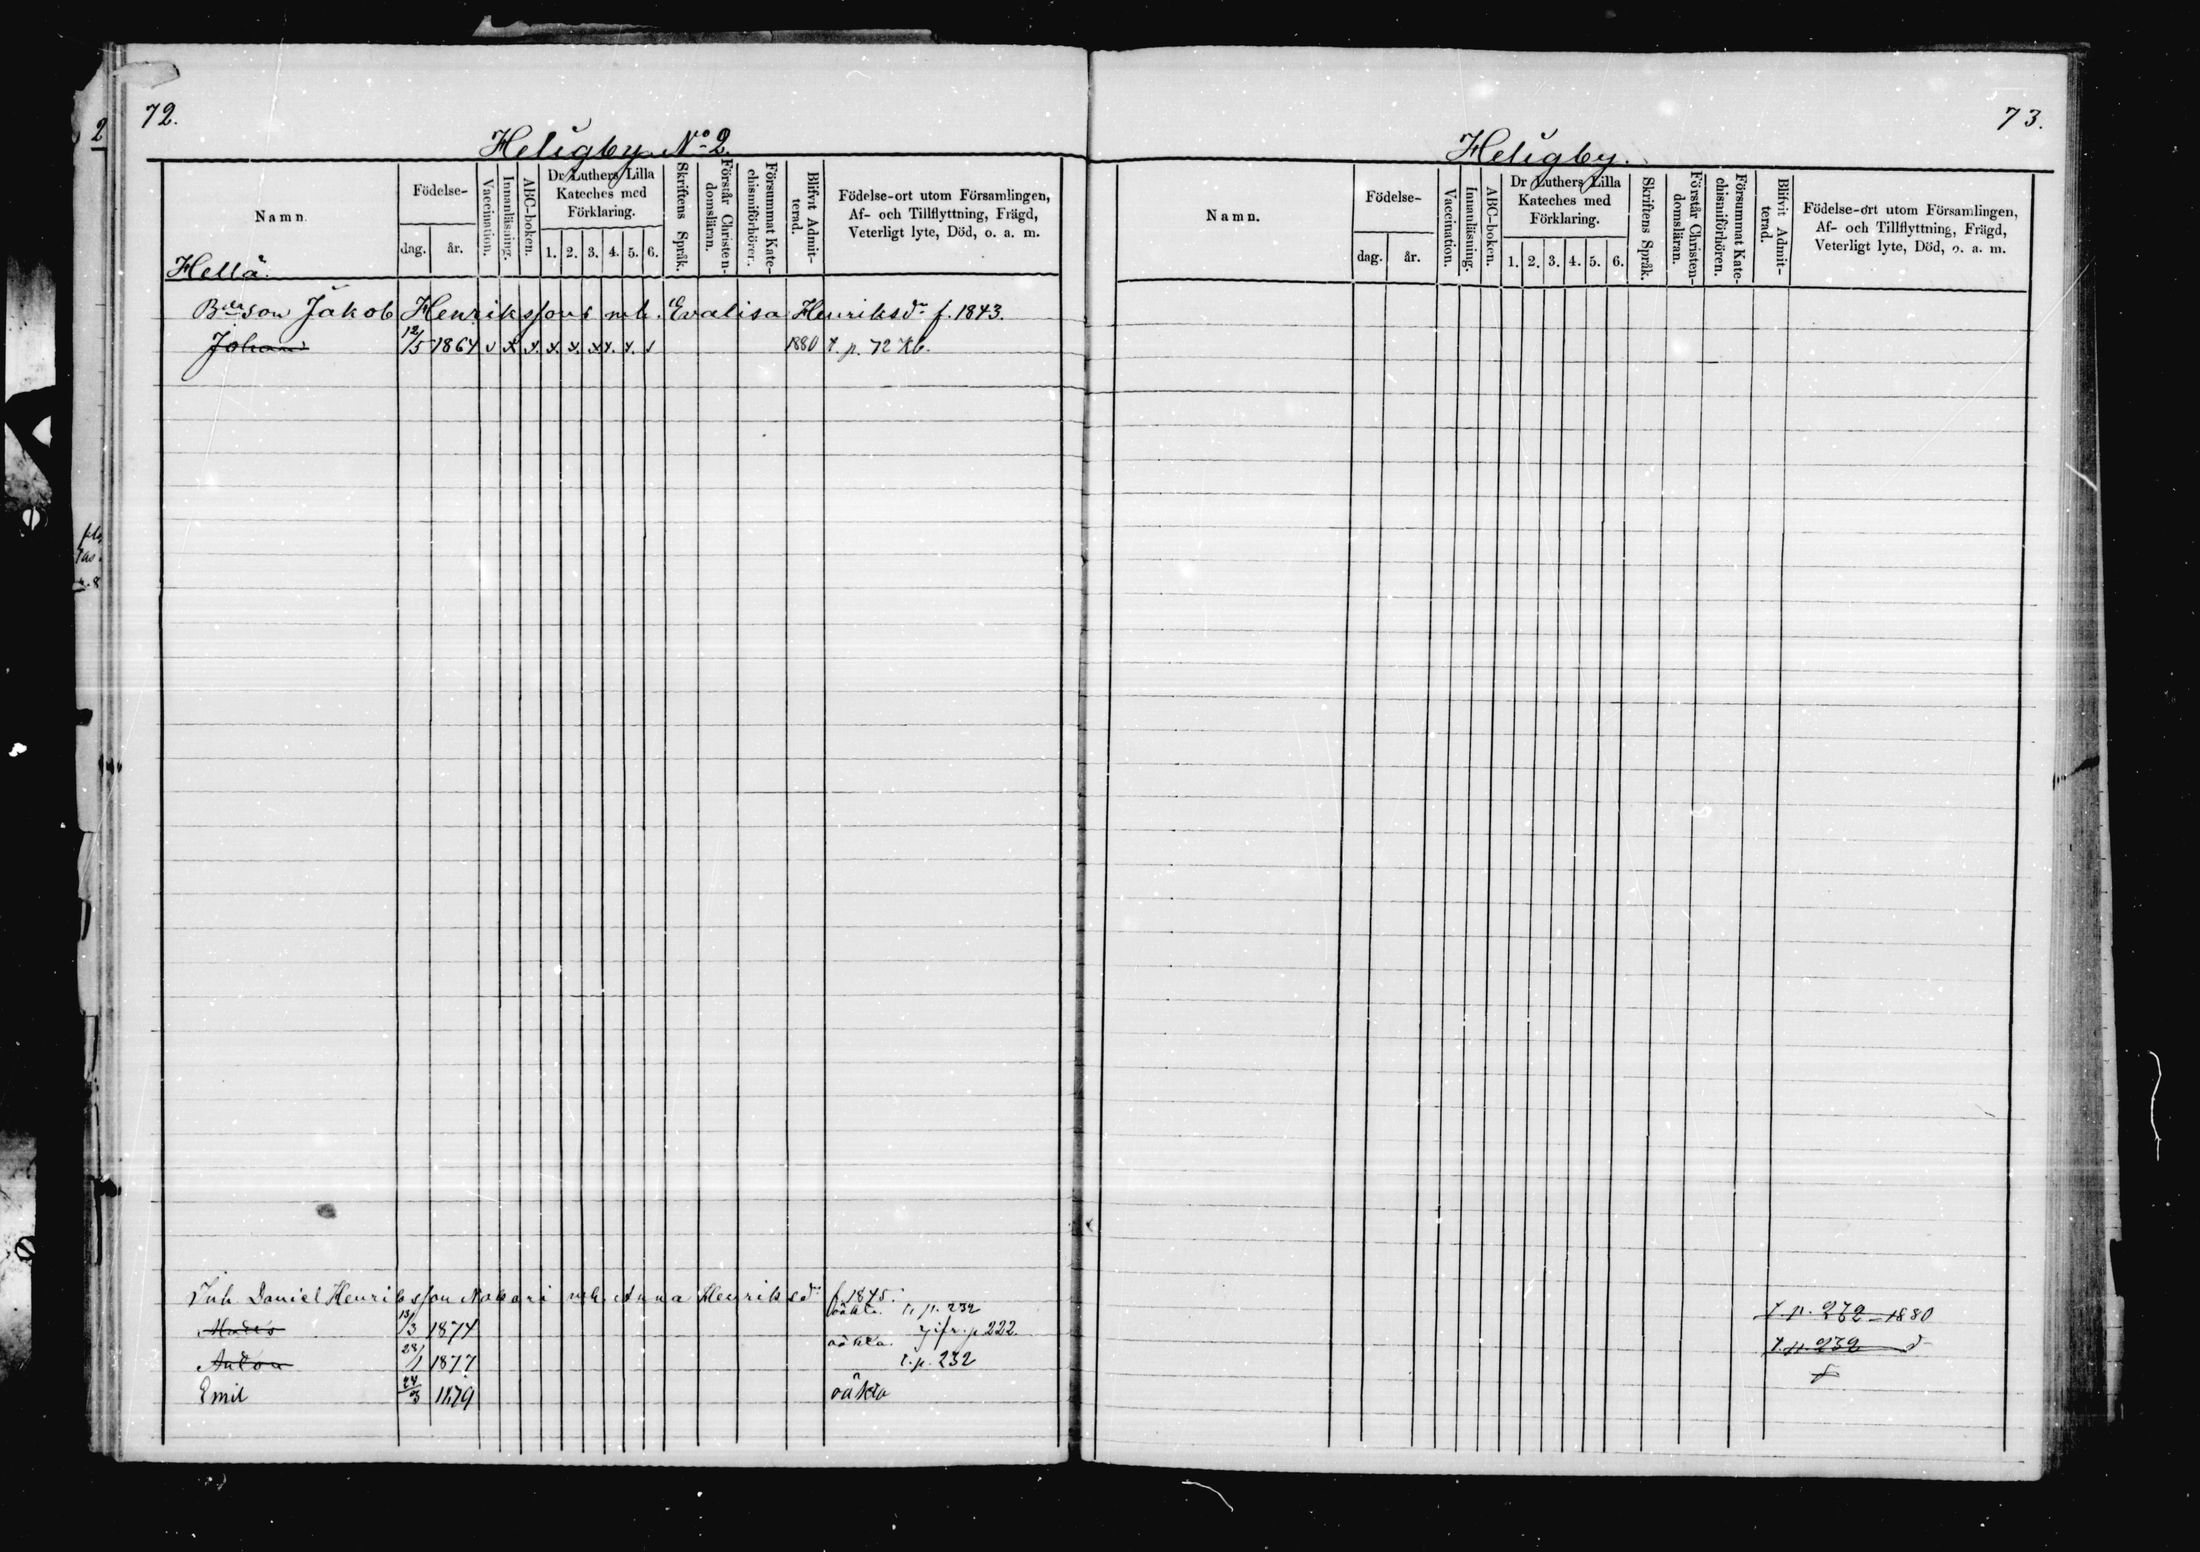 72.
Heligby No 2.
Namn.
Födelse-
dag. år.
Vaccination.
Innanläsning.
ABC-boken.
Dr Luthers Lilla
Kateches med
Förklaring.
1. 2. 3. 4. 5. 6.
Skriftens Språk.
Förstår Christen-
domsläran.
Försummat Kate-
chismiförhören.
Blifvit Admit-
terad.
Födelse-ort utom Församlingen,
Af- och Tillflyttning, Frägd,
Veterligt lyte, Död, o. a. m.
Hellä.
Bdeson Jakob Henrikssons mh. Evalisa Henriksdr f. 1843.
Johan 12/5 1864 v x x. x. x. x x. x. 1880 t. p. 72 Kb.
Inh Daniel Henriksson Nokari mh. Anna Henriksdr f. 1845.
13/3 1874 oäkta. t. p. 232
jifr. p 222.
Anton 28/1 1877 oäkta. t. p. 232
Emil 24/3 1879 oäkta
73.
Heligby.
Namn.
Födelse-
dag. år.
Vaccination.
Innanläsning.
ABC-boken.
Dr Luthers Lilla
Kateches med
Förklaring.
1. 2. 3. 4. 5. 6.
Skriftens Språk.
Förstår Christen-
domsläran.
Försummat Kate-
chismiförhören.
Blifvit Admit-
terad.
Födelse-ort utom Församlingen,
Af- och Tillflyttning, Frägd,
Veterligt lyte, Död, o. a. m.
t. p. 272 - 1880
t. p. 232 d